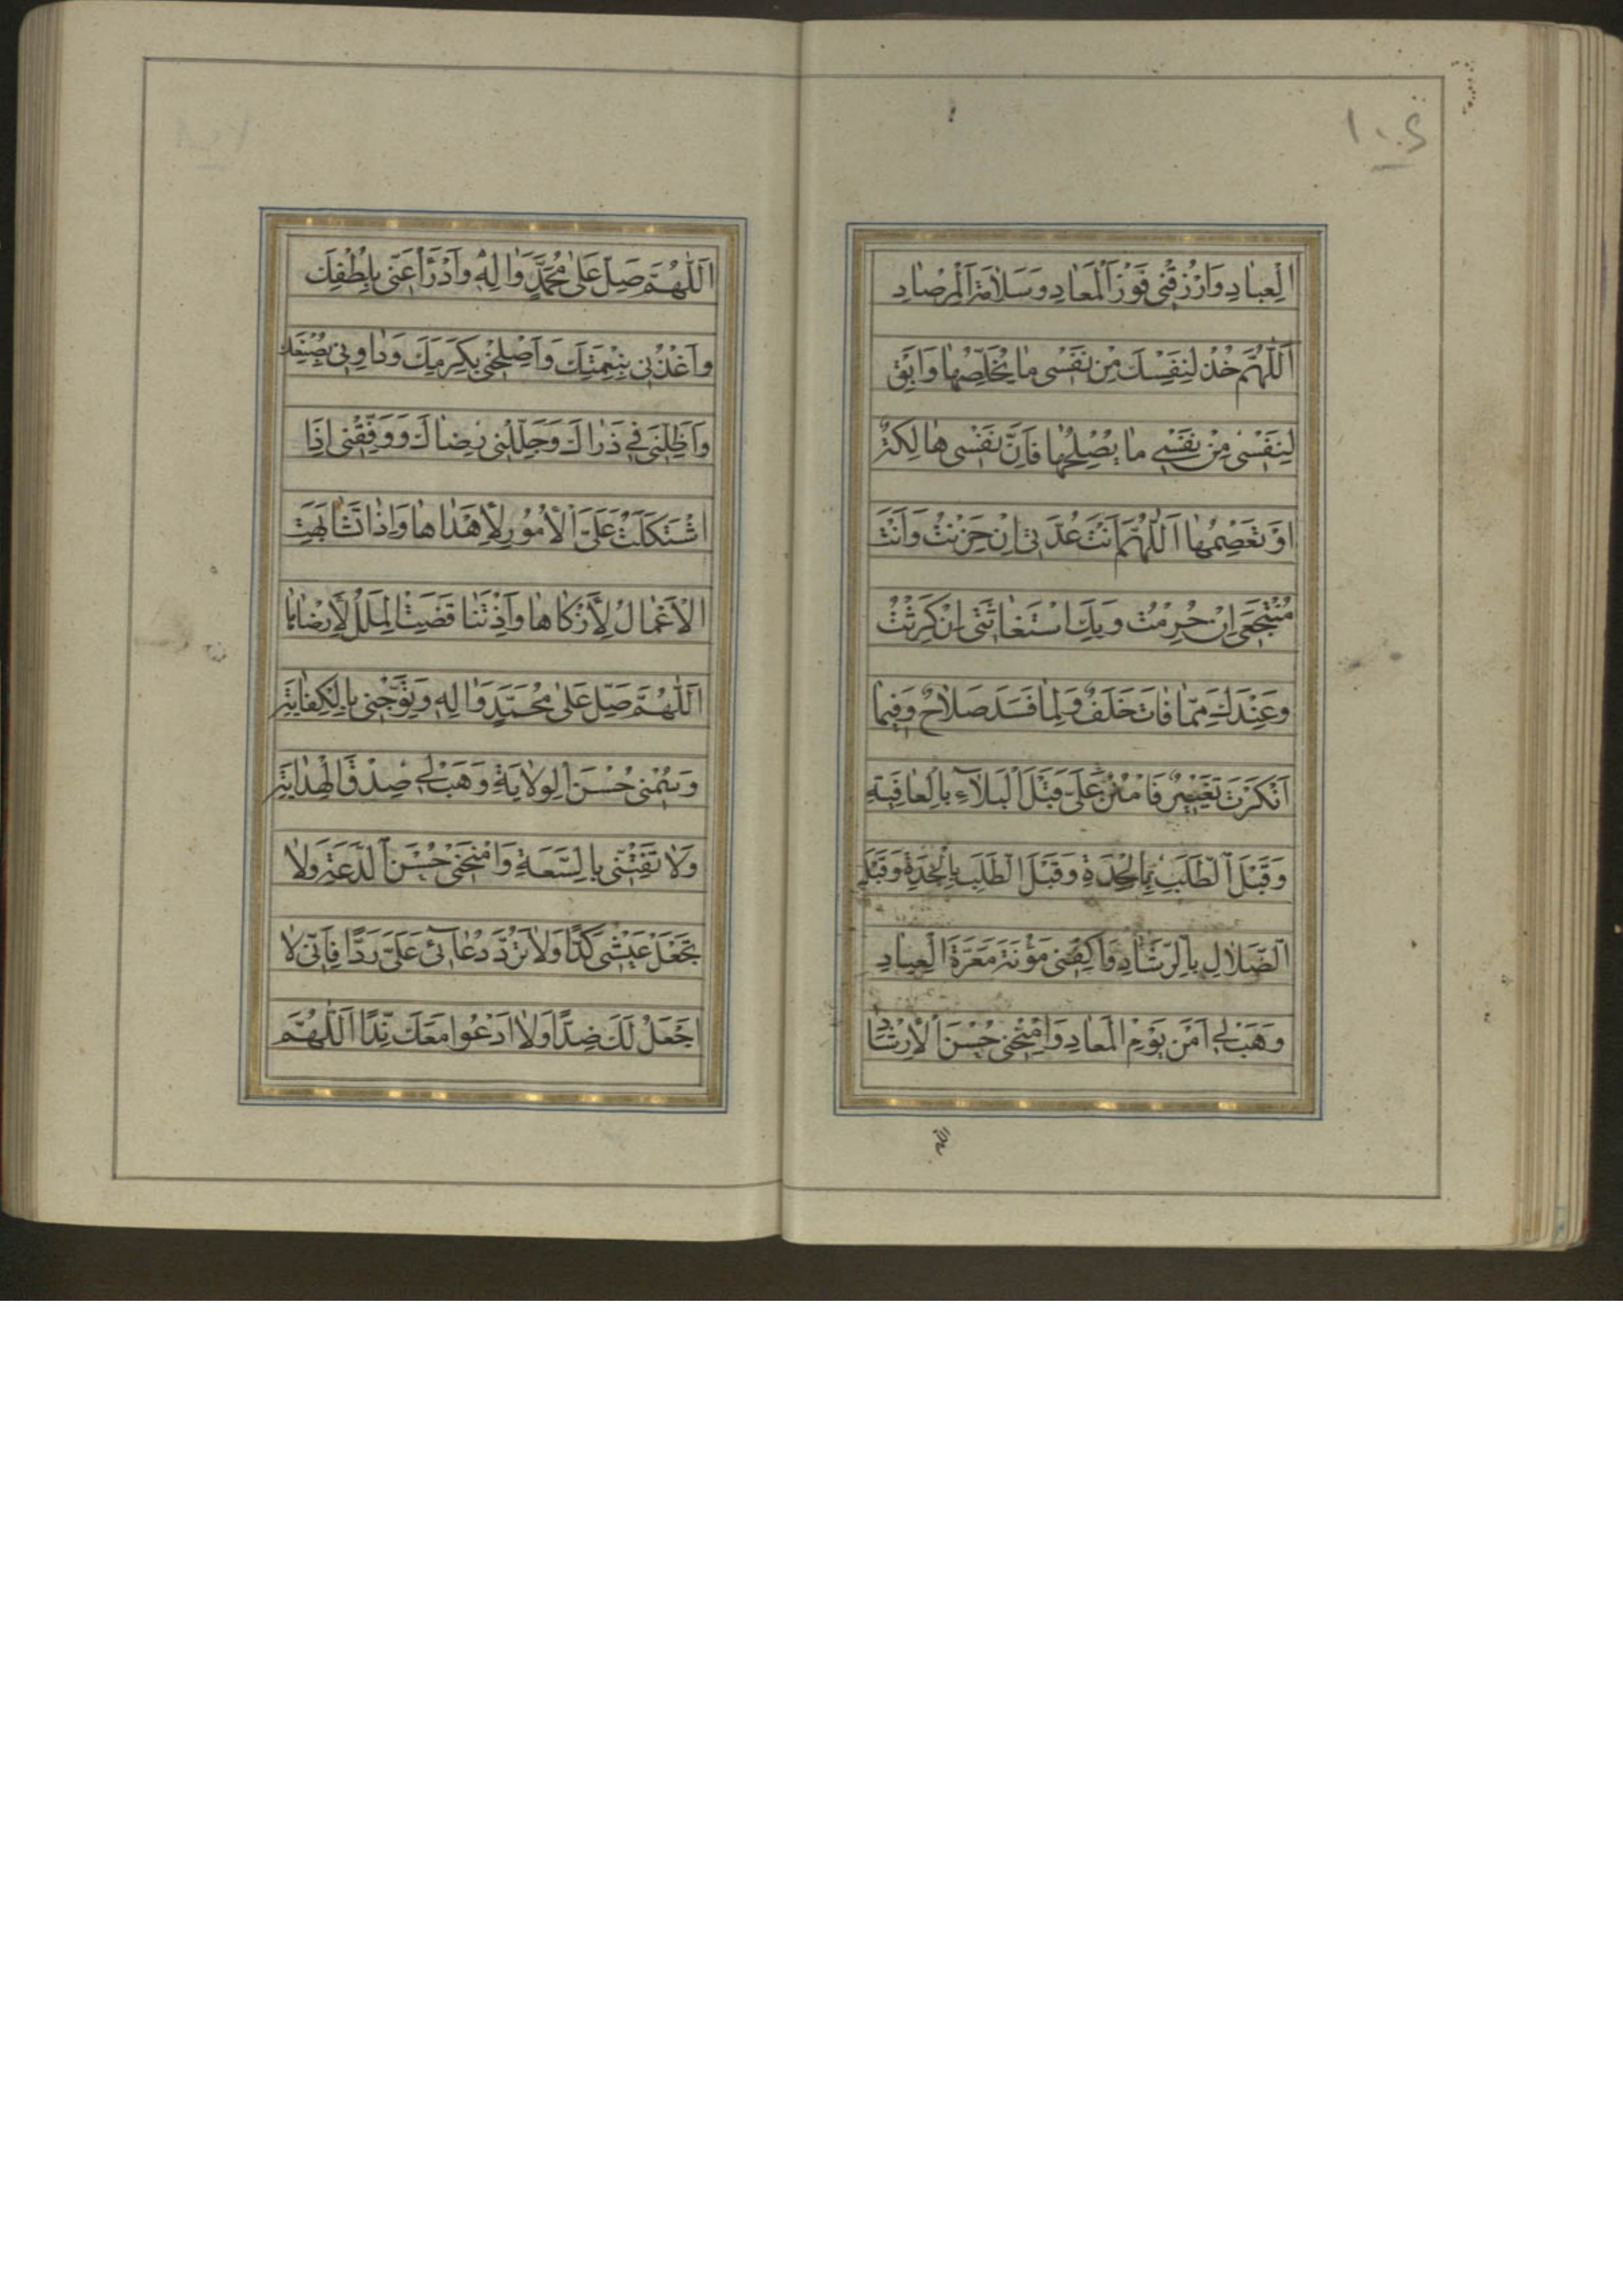 ١٠٤
الْعِبادِ وَارْزُقْنی فَوْزَ الْمَعادِ وَسَلامَةَ الْمِرْصادِ
اَللّٰهُمَّ خُذْ لِنَفْسِكَ مِنْ نَفْسی ما يُخَلِّصُها وَابْقِ
لِنَفْسی مِنْ نَفْسی ما يُصْلِحُها فَاِنَّ نَفْسی هالِكَةٌ
اَوْ تَعْصِمُها اَللّٰهُمَّ اَنْتَ عُدَّتی اِنْ حَزِنْتُ وَاَنْتَ
مُنْتَجَعی اِنْ حُرِمْتُ وَبِكَ اسْتَغاثَتی اِنْ كَرِثْتُ
وَعِنْدَكَ مِمّا فاتَ خَلَفٌ وَلِما فَسَدَ صَلاحٌ وَفيما
اَنْكَرْتَ تَغْييرٌ فَامْنُنْ عَلَیَّ قَبْلَ الْبَلاۤءِ بِالْعافِيَةِ
وَقَبْلَ الطَّلَبِ بِالْجِدَةِ وَقَبْلَ الطَّلَبِ بِالْجِدَةِ وَقَبْلَ
الضَّلالِ بِالرَّشادِ وَاكْفِنی مَؤُنَةَ مَعَرَّةَ الْعِبادِ
وَهَبْ لی اَمْنَ يَوْمِ الْمَعادِ وَامْنَحْنی حُسْنَ الْاِرْشادِ
اللهم
اَللّٰهُمَّ صَلِّ عَلیٰ مُحَمَّدٍ وَاٰلِهِ وَادْرَأْ عَنّی بِلُطْفِكَ
وَاغْذُنی بِنِعْمَتِكَ وَاَصْلِحْنی بِكَرَمِكَ وَداوِنی بِصُنْعِكَ
وَاَظِلَّنی فی ذَراكَ وَجَلِّلْنی رِضاكَ وَوَفِّقْنی اِذَا
اشْتَكَلَتْ عَلَیَّ الْاُمُورُ لِاَهْداها وَاِذا تَشابَهَتِ
الْاَعْمالُ لِاَزْكاها وَاِذْ تَنا قَضَتْ الْمِلَلُ لِاَرْضاها
اَللّٰهُمَّ صَلِّ عَلیٰ مُحَمَّدٍ وَاٰلِهِ وَتَوِّجْنی بِالْكِفايَةِ
وَسُمْنی حُسْنَ الْوِلايَةِ وَهَبْ لی صِدْقَ الْهِدايَةِ
وَلا تَفْتِنّی بِالسَّعَةِ وَامْنَحْنی حُسْنَ الدَّعَةِ وَلا
تَجْعَلْ عَيْشی كَدًّا وَلا تَرُدَّ دُعاۤئی عَلَیَّ رَدًّا فَاِنّی لا
اَجْعَلُ لَكَ ضِدًّا وَلا اَدْعُوا مَعَكَ نِدًّا اَللّٰهُمَّ